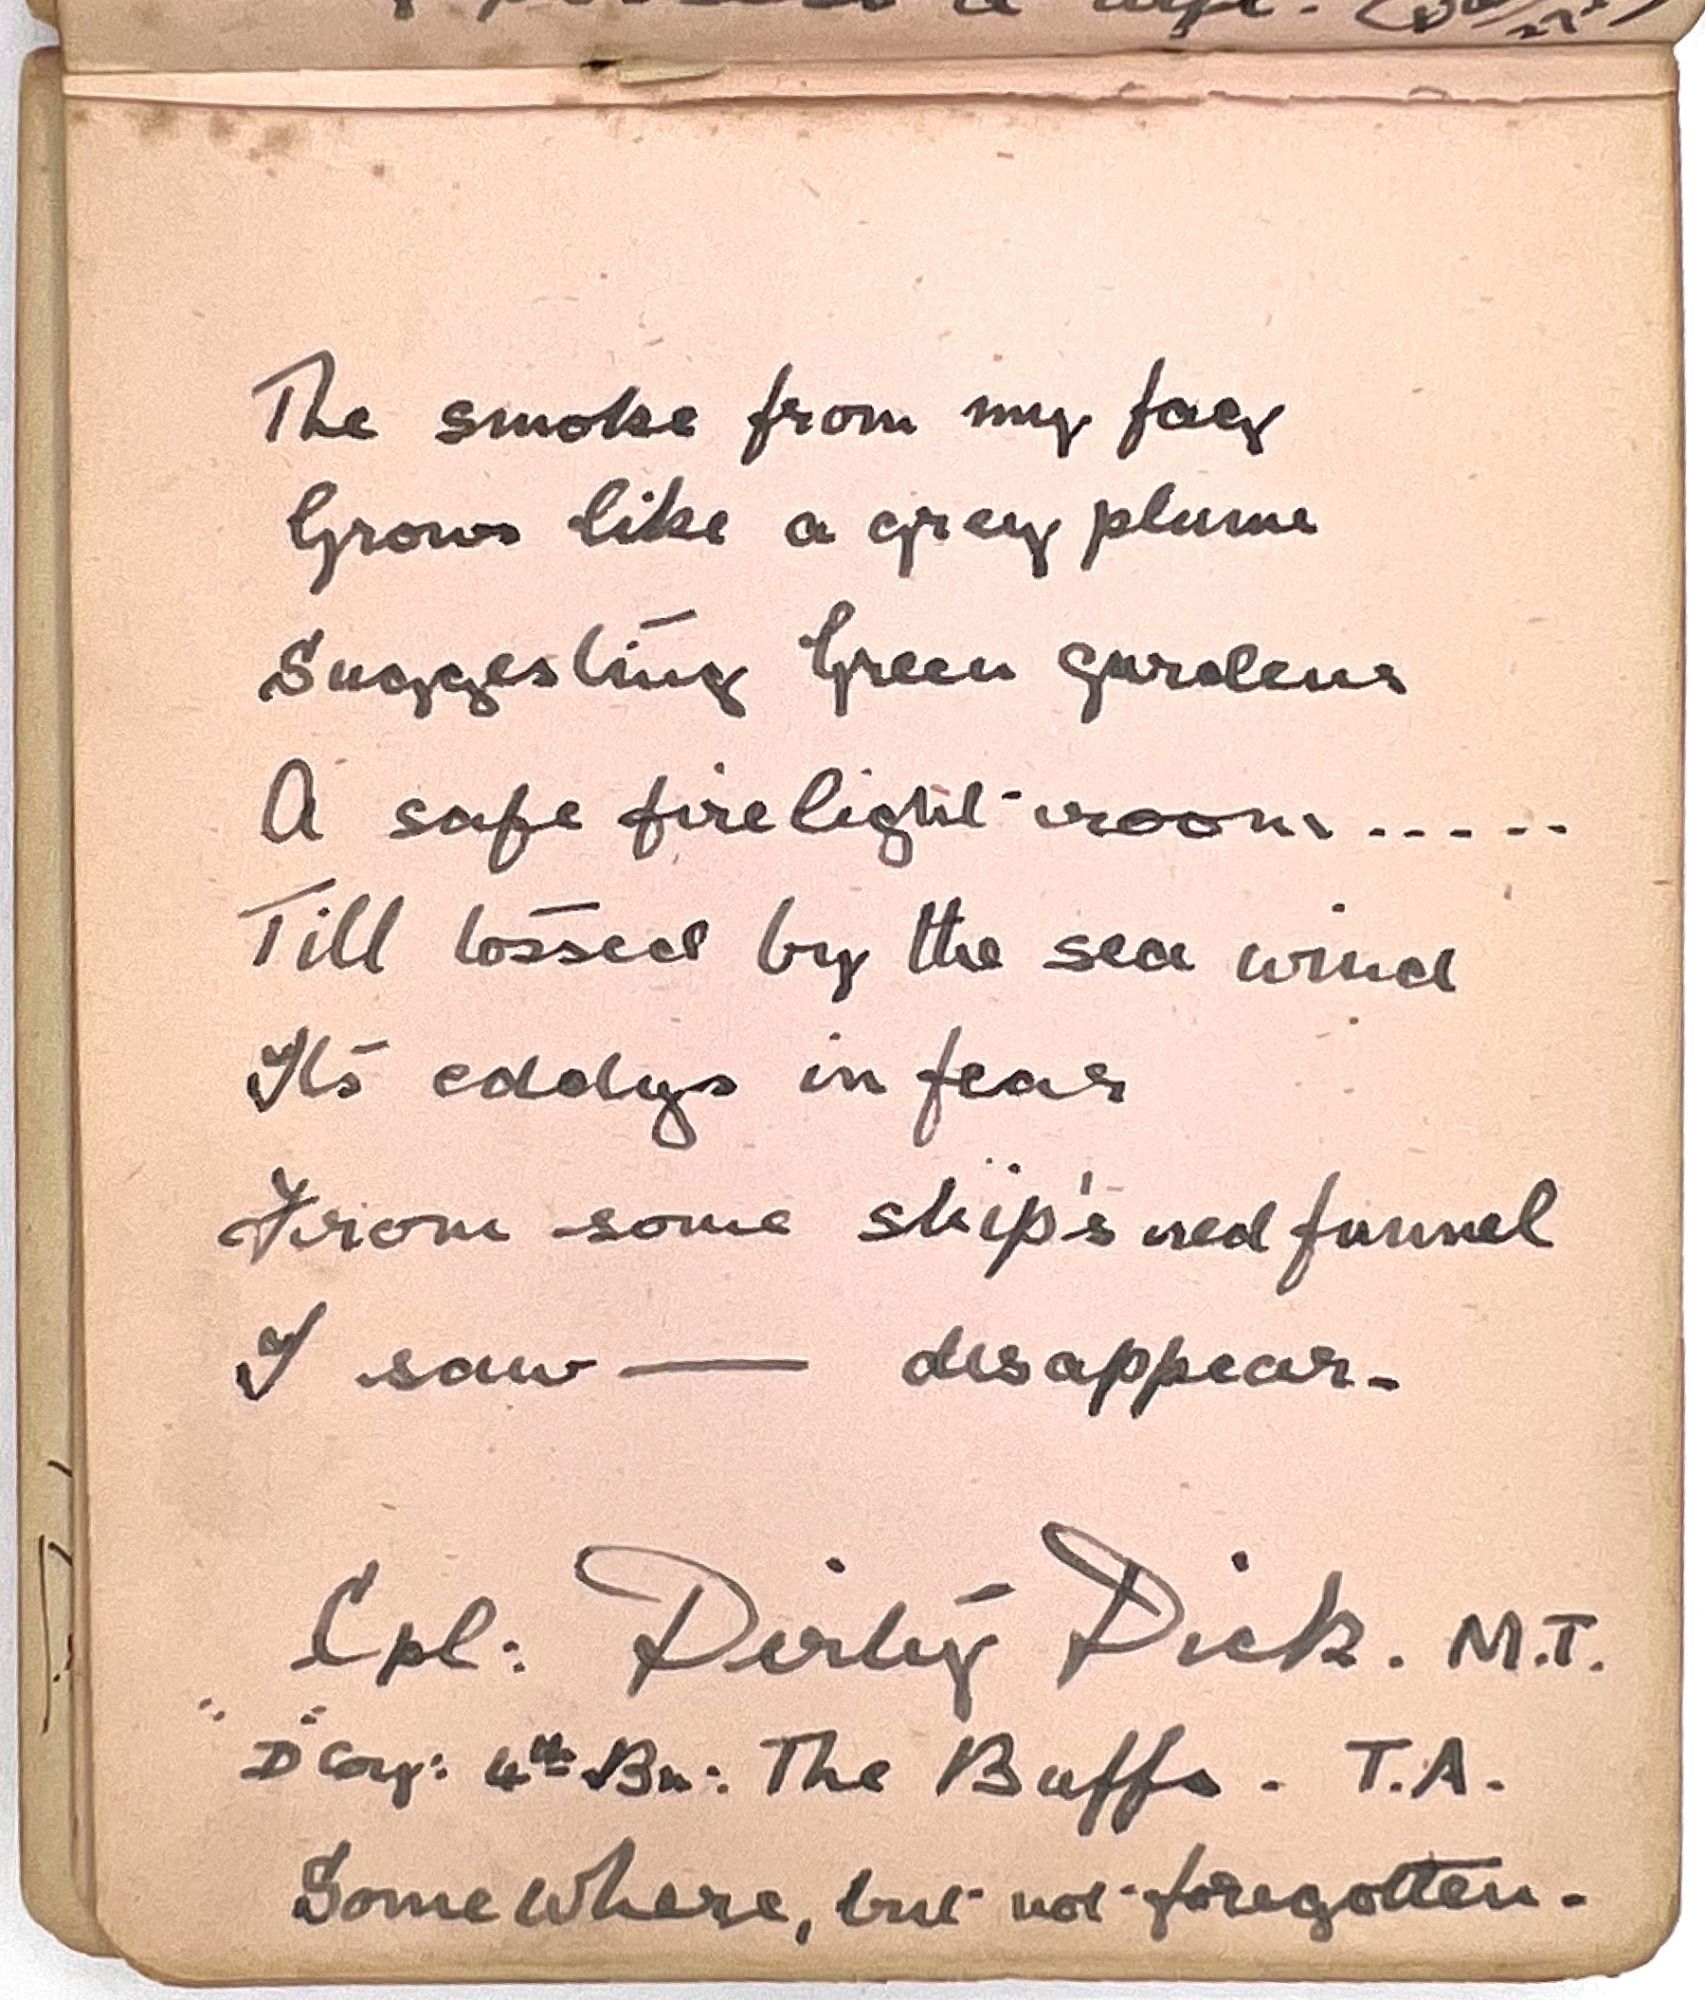 The smoke from my fag
Grows like a grey plume
Suggesting Green gardens
A safe firelight room.....
Till tossed by the sea wind
Its eddys in fear
From some ship's red funnel
I saw — disappear.
Cpl: Dirty Dick. M.T.
"D" Coy: 4th Bn: The Buffs. T.A.
Somewhere, but not foregotten.